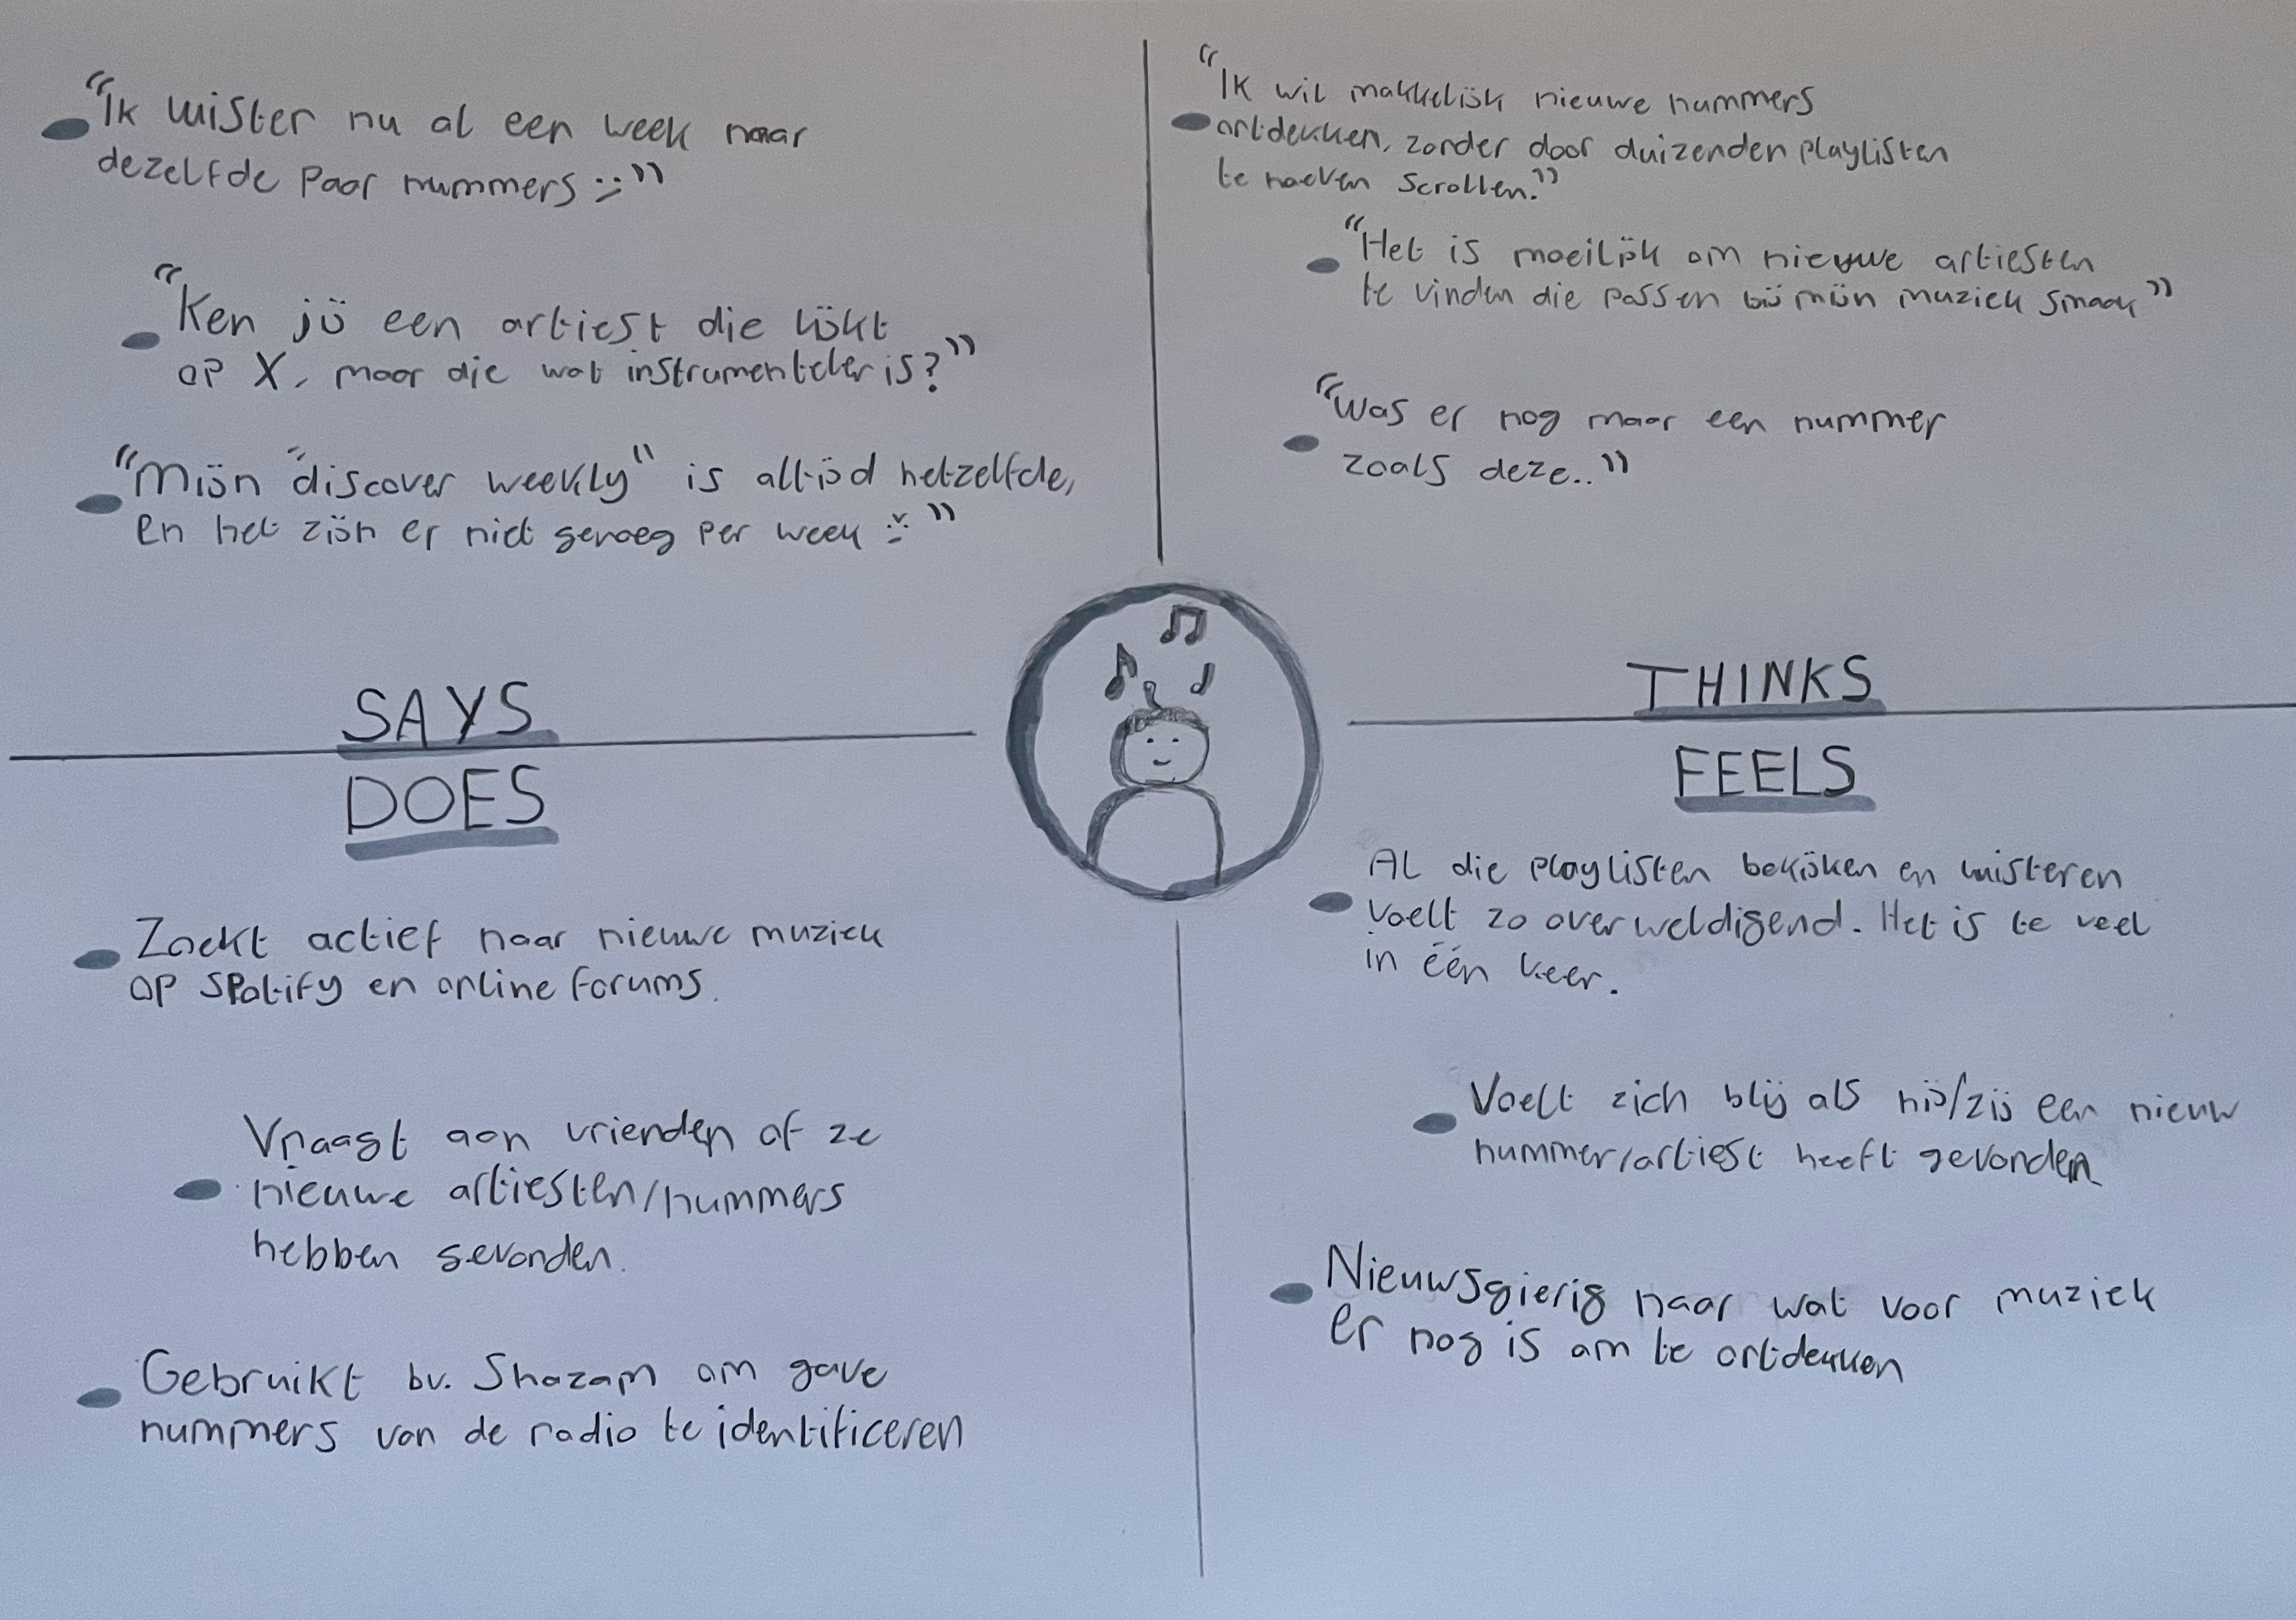 "Ik luister nu al een week naar
dezelfde paar nummers :/"
"Ken jij een artiest die lijkt
op X, maar die wat instrumenteler is?"
"Mijn "discover weekly" is altijd hetzelfde,
en het zijn er niet genoeg per week :("
SAYS
"Ik wil makkelijk nieuwe nummers
ontdekken, zonder door duizenden playlisten
te hoeven scrollen."
"Het is moeilijk om nieuwe artiesten
te vinden die passen bij mijn muziek smaak"
"Was er nog maar een nummer
zoals deze.."
THINKS
DOES
Zoekt actief naar nieuwe muziek
op Spotify en online forums.
Vraagt aan vrienden of ze
nieuwe artiesten/nummers
hebben gevonden.
Gebruikt bv. Shazam om gave
nummers van de radio te identificeren
FEELS
Al die playlisten bekijken en luisteren
voelt zo overweldigend. Het is te veel
in één keer.
Voelt zich blij als hij/zij een nieuw
nummer/artiest heeft gevonden
Nieuwsgierig naar wat voor muziek
er nog is om te ontdekken